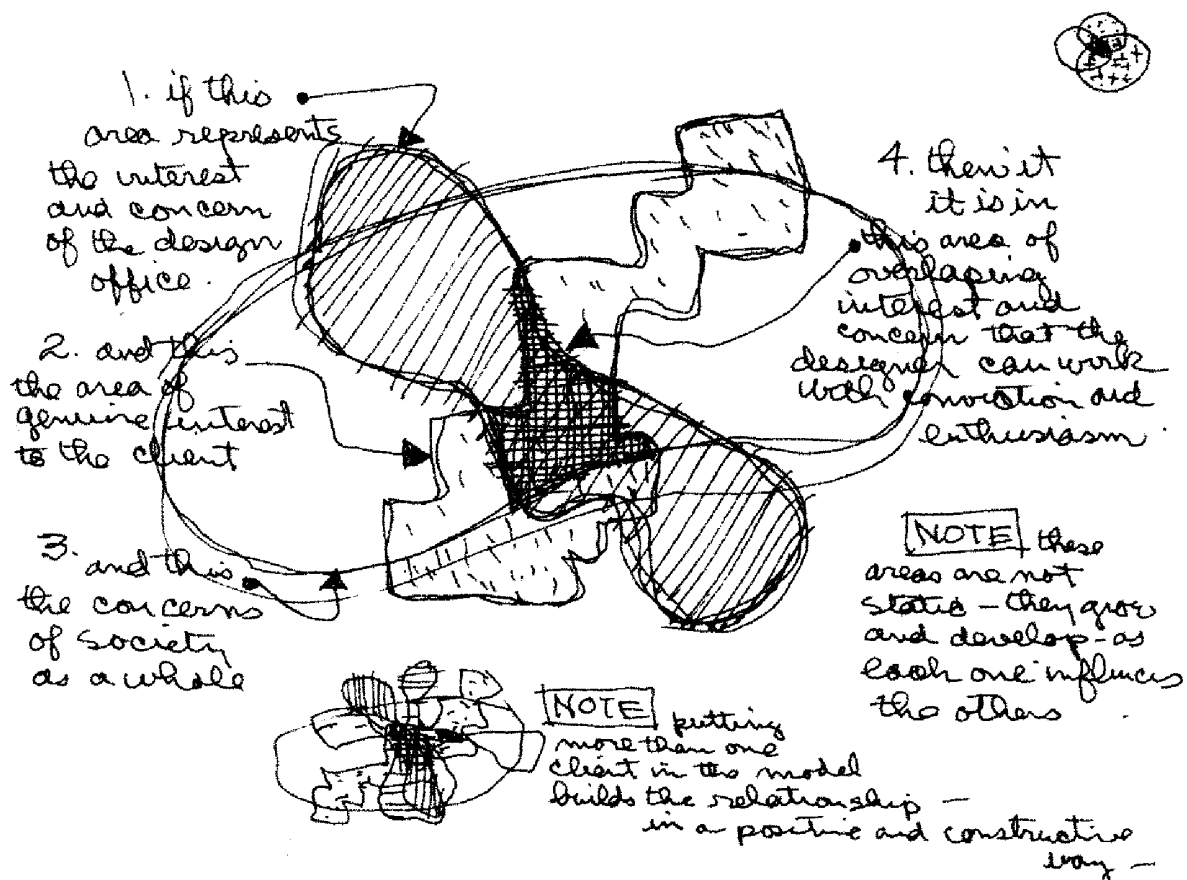 1. if this
area represents
the interest
and concern
of the design
office.
2. and this
the area of
genuine interest
to the client
3. and this
the concerns
of society
as a whole
4. then it
it is in
this area of
overlaping
interest and
concern that the
designer can work
with conviction and
enthusiasm
NOTE these
areas are not
static - they grow
and develop - as
each one influences
the others
NOTE putting
more than one
client in the model
builds the relationship —
in a positive and constructive
way —